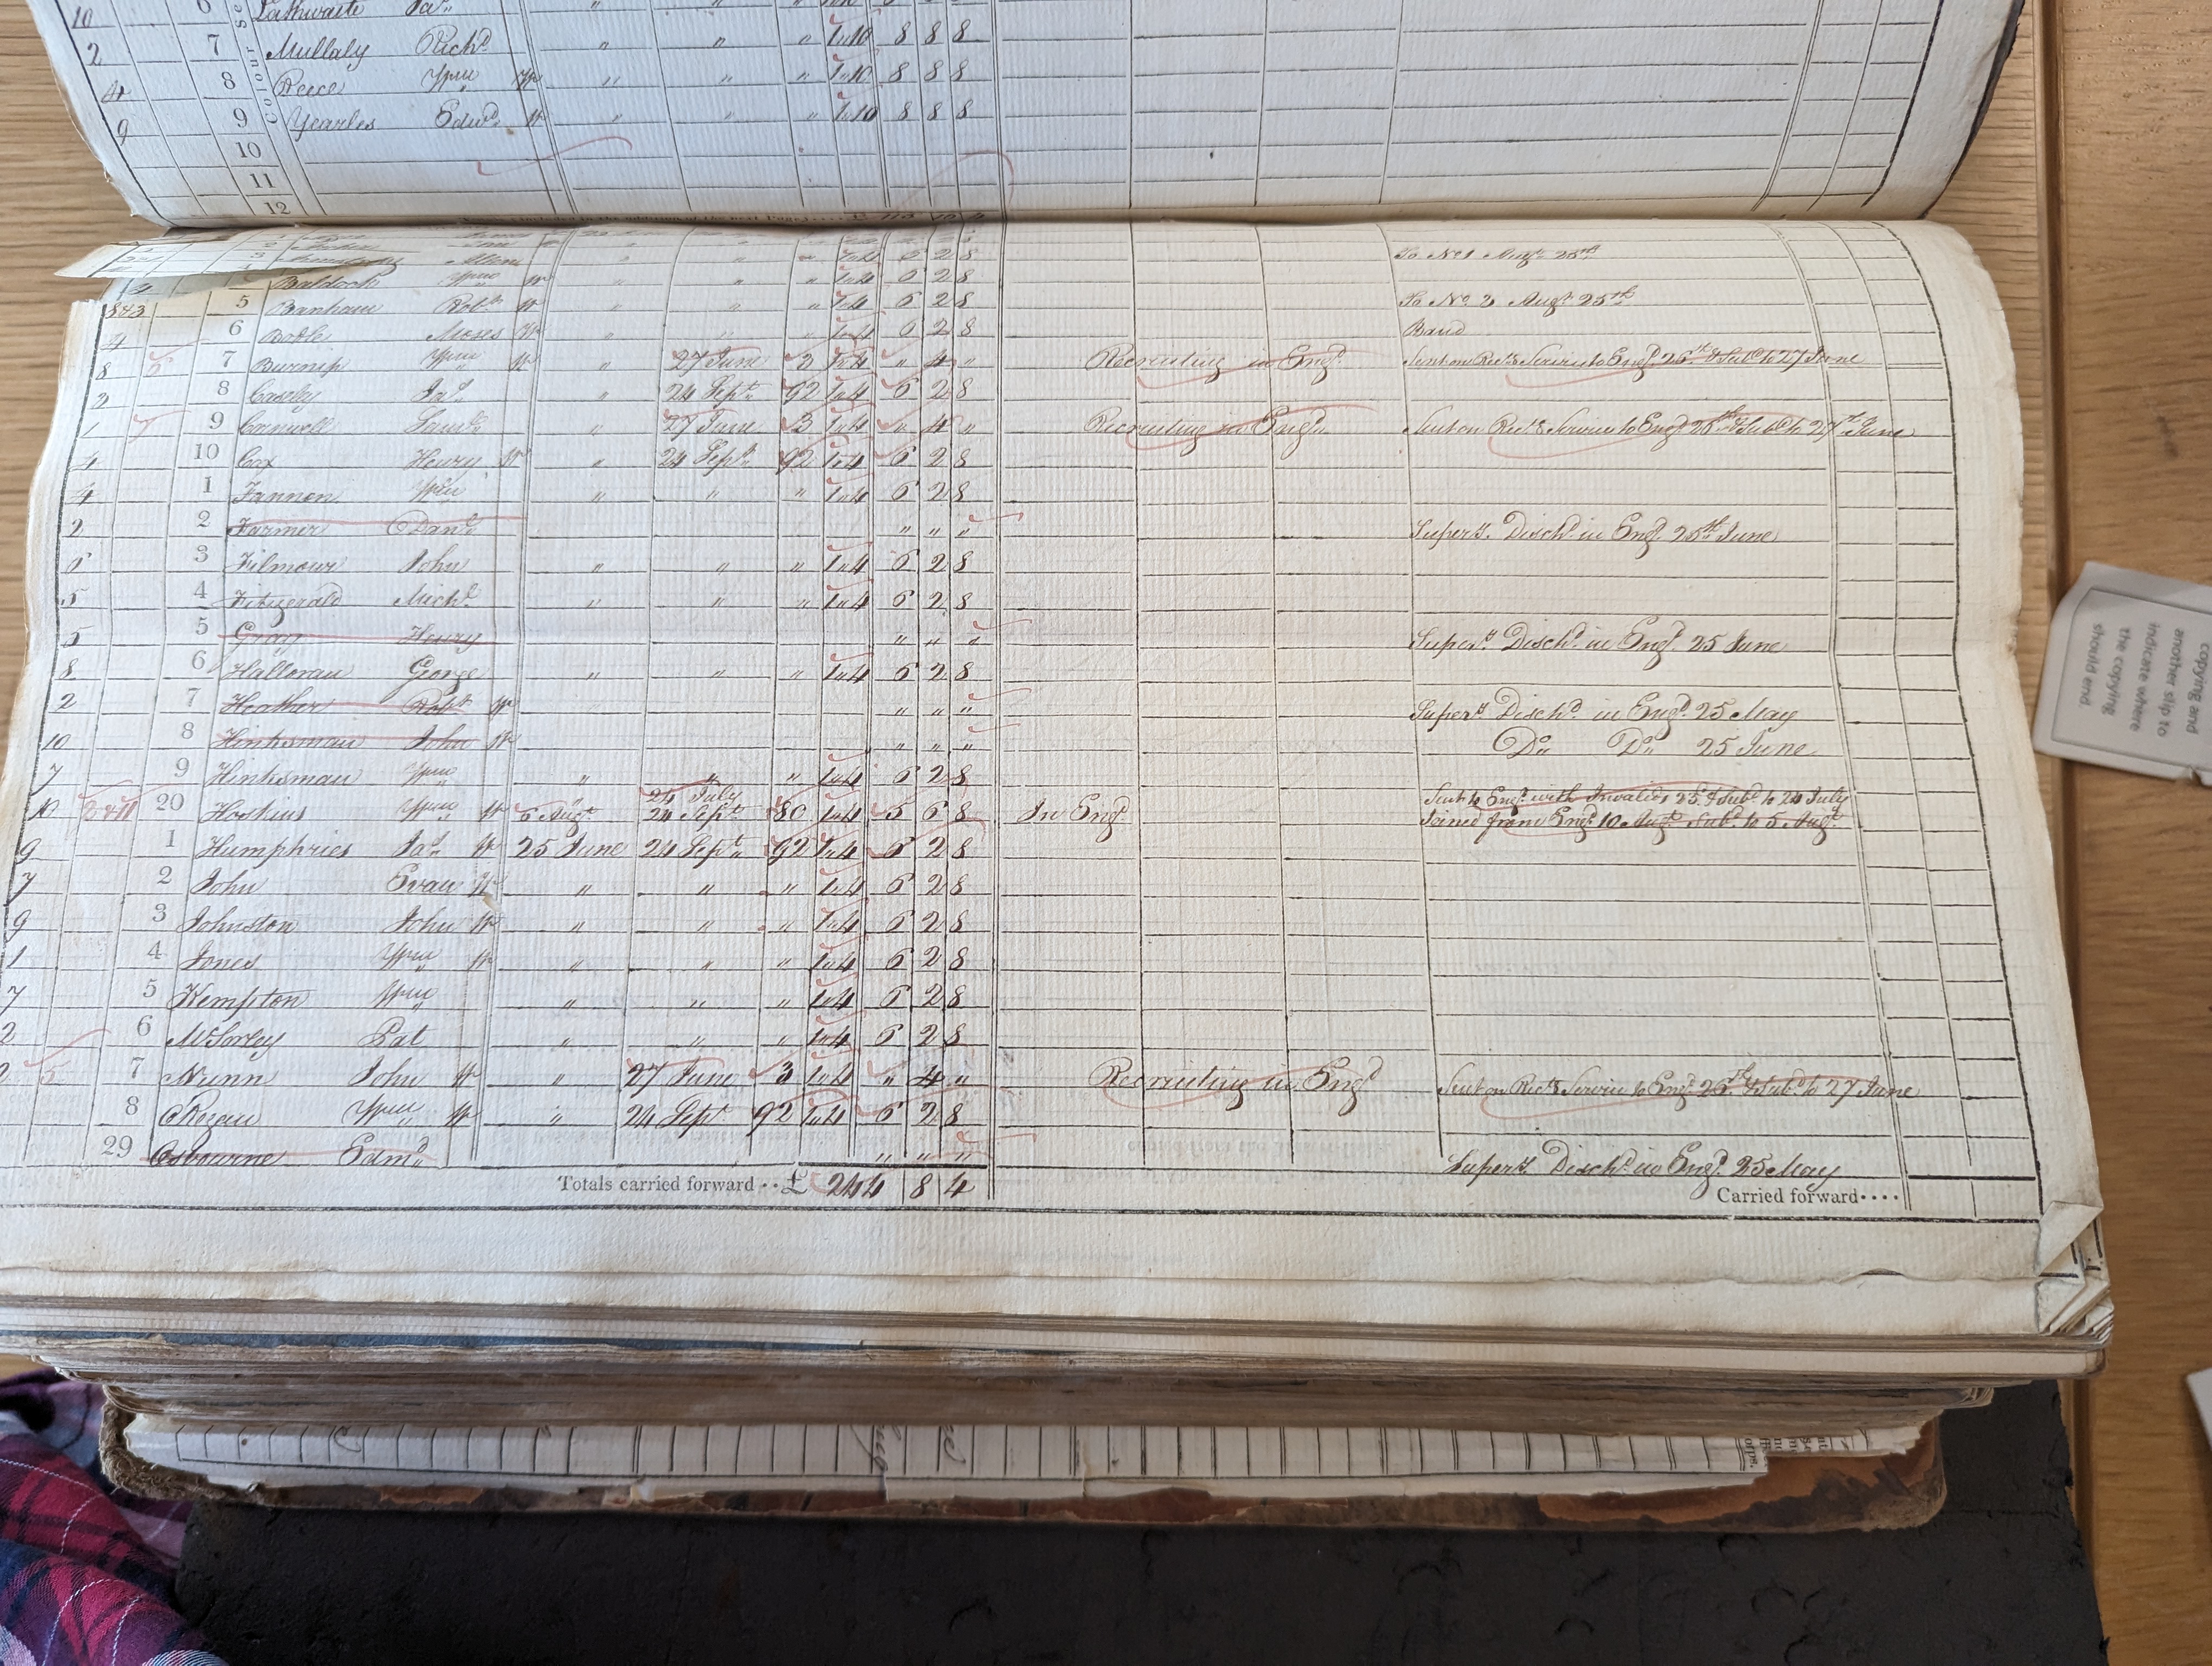 10 6 Lathwaite Jas
2 7 Mullaly Richd " " " 1..10 8 8 8
4 8 Reece Wm " " " 1..10 8 8 8
9 9 Yearles Edwd " " " 1..10 8 8 8
10
11
12
Colour Se
3 " " " 1..4 6 2 8 To No 1 Augt 25th
4 Baldock Wm " " " 1..4 6 2 8
843 5 Banham Robt " " " 1..4 6 2 8 To No 2 Augt 25th
4 6 Boble Moses " " " 1..4 6 2 8 Band
8 5 7 Burnip Wm " 27 June 3 1..4 " 4 " Recruiting in Engd Sent on Rectg Service to Engd 26th & Subd to 27 June
2 8 Caseley Jas " 24 Septr 92 1..4 6 2 8
1 9 Conwell Saml " 27 June 3 1..4 " 4 " Recruiting in Engd Sent on Rectg Service to Engd 26th & Subd to 27th June
4 10 Cox Henry " 24 Septr 92 1..4 6 2 8
4 1 Fannon Wm " " " 1..4 6 2 8
2 2 Farmer Danl " " " Supery Dischd in Engd 25th June
6 3 Filmour John " " " 1..4 6 2 8
5 4 Fitzgerald Michl " " " 1..4 6 2 8
5 5 Gray Henry " " " Supery Dischd in Engd 25 June
8 6 Halloran George " " " 1..4 6 2 8
2 7 Heather Robt " " " Supery Dischd in Engd 25 May
10 8 Hinksman John " " " Do Do 25 June
7 9 Hinksman Wm " " " 1..4 6 2 8
" 24 July Sent to Engd with Invalids 25 & Subd to 24 July
10 20 Hoskins Wm 6 Augt 24 Septr 80 1..4 5 6 8 In Engd Joined from Engd 10 Augt Subd to 5 Augt
9 1 Humphries Jas 25 June 24 Septr 92 1..4 6 2 8
7 2 John Evan " " " 1..4 6 2 8
9 3 Johnston John " " " 1..4 6 2 8
1 4 Jones Wm " " " 1..4 6 2 8
7 5 Kempton Wm " " " 1..4 6 2 8
2 6 McSorley Pat " " " 1..4 6 2 8
5 7 Nunn John " 27 June 3 1..4 " 4 " Recruiting in Engd Sent on Rectg Service to Engd 26th & Subd to 27 June
8 Rozan Wm " 24 Septr 92 1..4 6 2 8
29 Osbourne Edmd " " " Supery Dischd in Engd 25 May
Totals carried forward .. £ 244 8 4 Carried forward....
copying and
another slip to
indicate where
the copying
should end